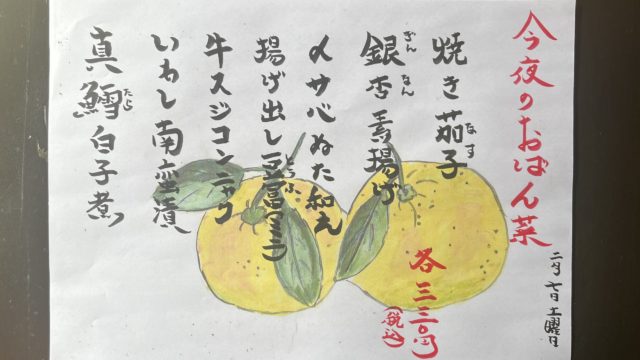 今夜のおばん菜
二月七日土曜日
焼き茄子
なす
銀杏素揚げ
ぎんなん
〆サバぬた和え
揚げ出し豆腐(ミニ)
とうふ
牛スジコンニャク
いわし南蛮漬
真鱈白子煮
たら
各三三〇円
(税込)